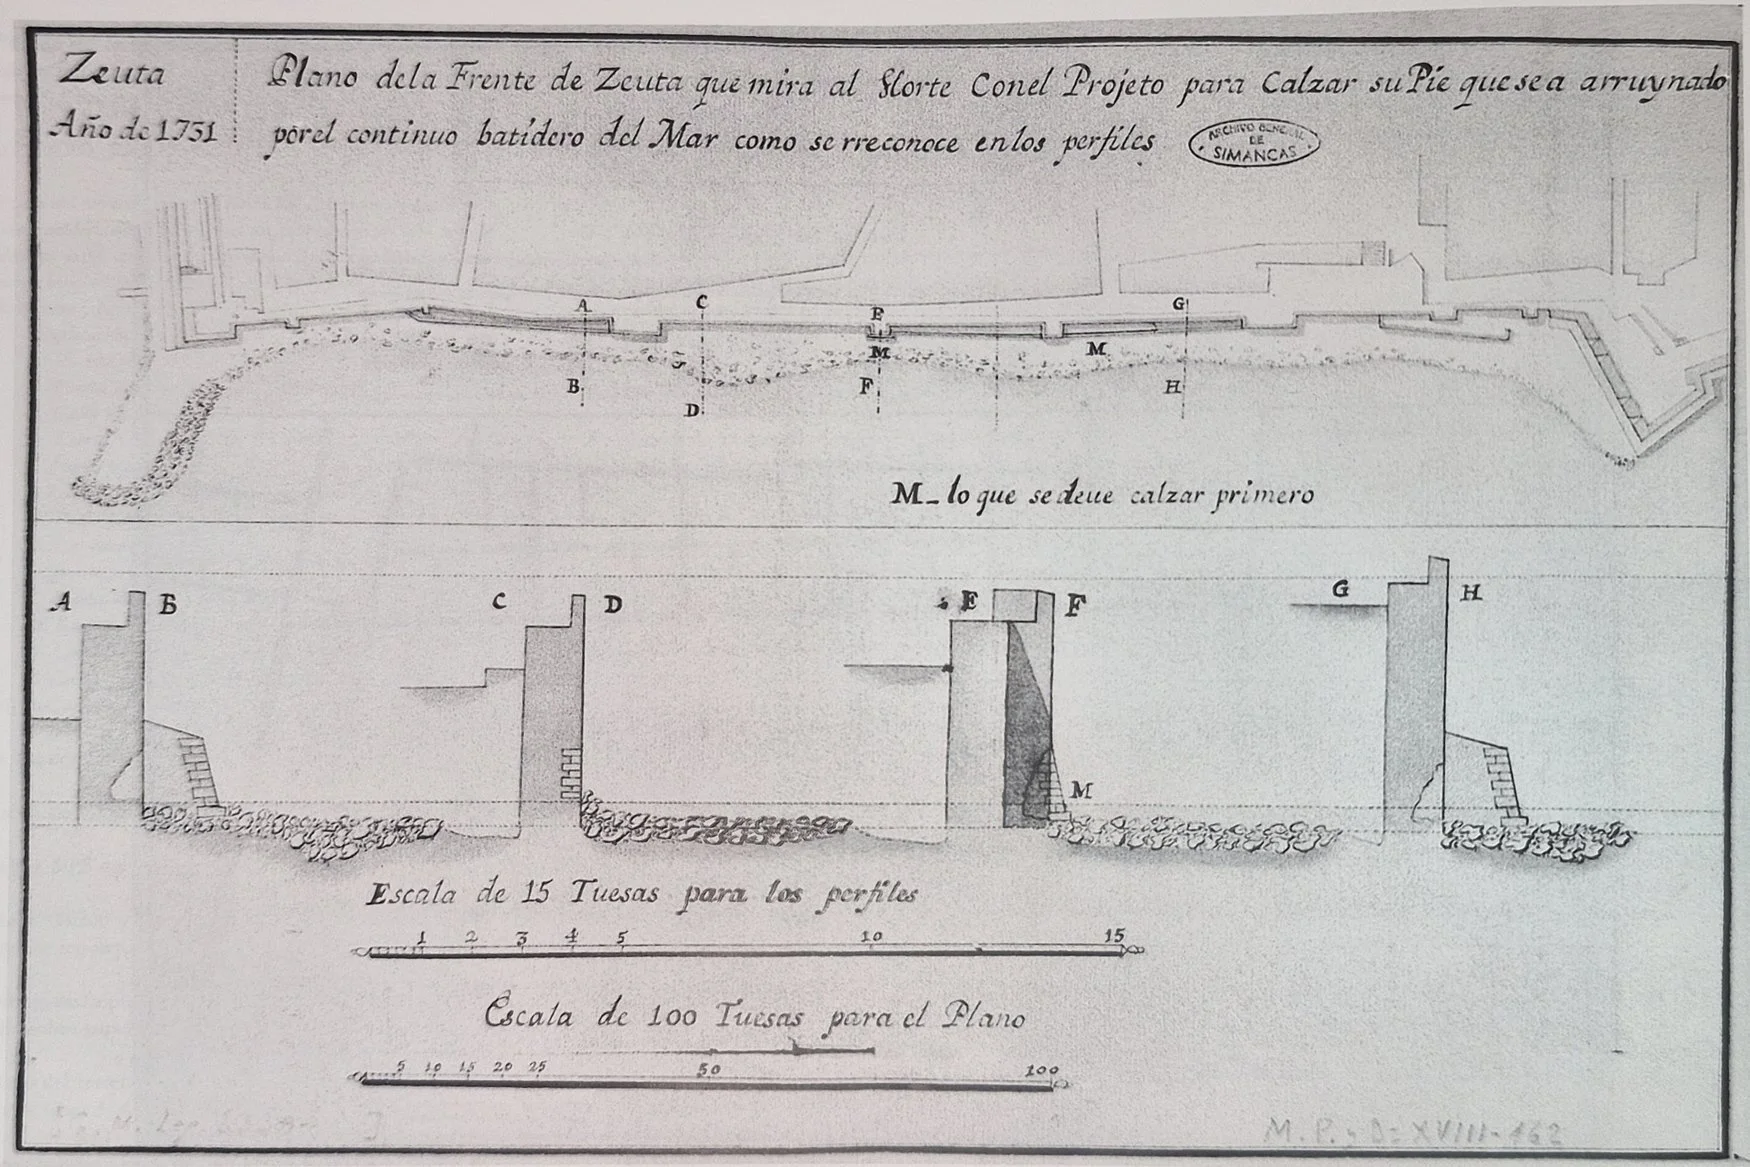 Zeuta
Año de 1731
Plano dela Frente de Zeuta que mira al Norte Conel Projeto para Calzar su Pie que se a arruynado
porel continuo batidero del Mar como se rreconoce enlos perfiles
ARCHIVO GENERAL
DE
SIMANCAS
A C E G
M M
B F H
D
M_ lo que se deue calzar primero
A B C D E F G H
M
Escala de 15 Tuesas para los perfiles
1 2 3 4 5 10 15
Escala de 100 Tuesas para el Plano
5 10 15 20 25 50 100
M. P. y D = XVIII-162